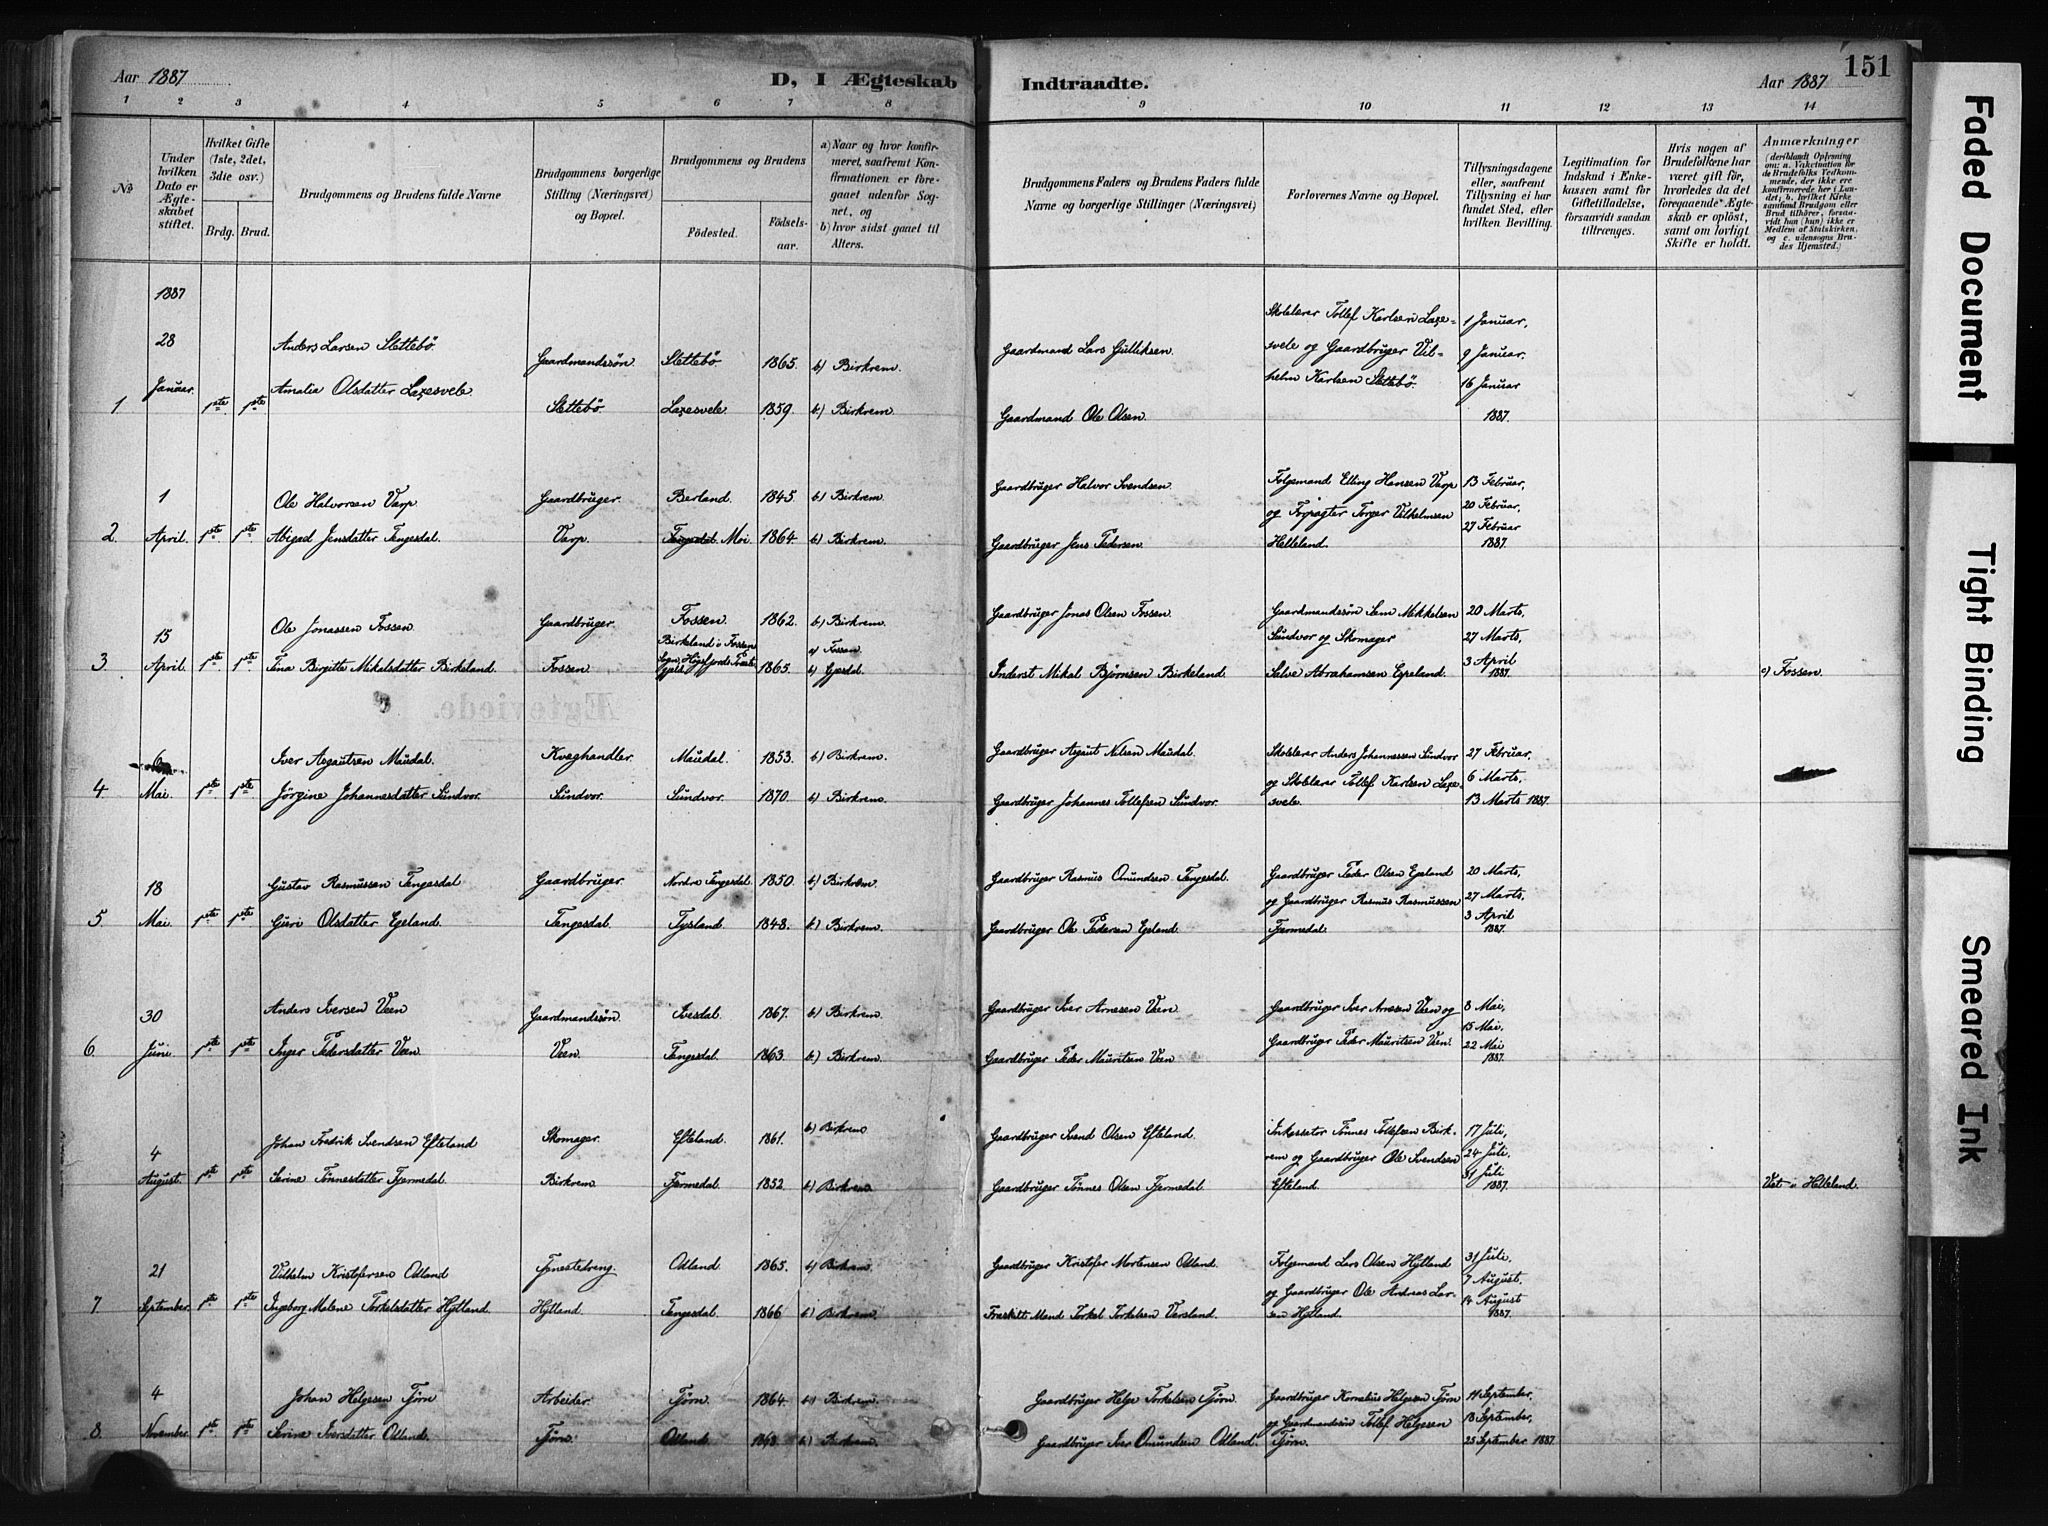 Aar 1887
D, I Ægteskab
Indtraadte.
Aar 1887
151
1 2 3 4 5 6 7 8 9 10 11 12 13 14
No
Under hvilken Dato er Ægteskabet stiftet.
Hvilket Gifte (1ste, 2det, 3die osv.)
Brdg. Brud.
Brudgommens og Brudens fulde Navne
Brudgommens borgerlige Stilling (Næringsvei) og Bopæl.
Brudgommens og Brudens
Födested.
Födselsaar.
a) Naar og hvor konfirmeret, saafremt Konfirmationen er foregaaet udenfor Sognet, og
b) hvor sidst gaaet til Alters.
Brudgommens Faders og Brudens Faders fulde Navne og borgerlige Stillinger (Næringsvei)
Forlovernes Navne og Bopæl.
Tillysningsdagene eller, saafremt Tillysning ei har fundet Sted, efter hvilken Bevilling.
Legitimation for Indskud i Enkekassen samt for Giftetilladelse, forsaavidt saadan tiltrænges.
Hvis nogen af Brudefolkene har været gift för, hvorledes da det foregaaende Ægteskab er oplöst, samt om lovligt Skifte er holdt.
Anmærkninger
(deriblandt Oplysning om: a. Vakcination for de Brudefolks Vedkommende, der ikke ere konfirmerede her i Landet; b. hvilket Kirkesamfund Brudgom eller Brud tilhörer, forsaavidt han (hun) ikke er Medlem af Statskirken, og c. udensogns Brudes Hjemsted.)
1887
28 Anders Larsen Slettebö. Gaardmandssön. Slettebö. 1865. b) Birkrem. Gaardmand Lars Gulliksen. Skolelærer Tollef Karlsen Laxe- 1 Januar,
svele og Gaardbruger Vil- 9 Januar,
1 Januar. 1ste 1ste Amalia Olsdatter Laxesvele. Slettebö. Laxesvele. 1859. b) Birkrem. Gaardmand Ole Olsen. helm Karlsen Slettebö. 16 Januar
1887.
1 Ole Halvorsen Varp. Gaardbruger. Berland. 1845 b) Birkrem. Gaardbruger Halvor Svendsen. Folgemand Elling Hansen Varp 13 Februar,
og Forpagter Torger Vilhelmsen 20 Februar,
27 Februar
2. April. 1ste 1ste Abigael Jensdatter Tengesdal. Varp. Tengesdal. Moi. 1864. b) Birkrem. Gaardbruger Jens Pedersen. Helleland. 1887.
15 Ole Jonassen Fossen. Gaardbruger. Fossen. 1862. b) Birkrem. Gaardbruger Jonas Olsen Fossen. Gaardmandssön Sem Mikkelsen 20 Marts,
Birkeland i Fossens a) Fossen. Sundvor og Skomager 27 Marts,
3 April. 1ste 1ste Tina Birgitte Mikalsdatter Birkeland. Fossen. Sogn, Högsfjords Præstegjeld 1865. b) Gjesdal. Inderst Mikal Bjørnsen Birkeland. Salve Abrahamsen Espeland. 3 April
1887. c) Fossen.
6 Iver Asgautsen Maudal. Kvæghandler. Maudal. 1853. b) Birkrem. Gaardbruger Asgaut Nilsen Maudal. Skolelærer Anders Johannessen Sundvor 27 Februar,
og Skolelærer Tollef Karlsen Laxe- 6 Marts,
4. Mai. 1ste 1ste Jörgine Johannesdatter Sundvor. Sundvor. Sundvor. 1870. b) Birkrem. Gaardbruger Johannes Tollefsen Sundvor. svele. 13 Marts 1887.
18 Gustav Rasmussen Tengesdal Gaardbruger. Nordre Tengesdal. 1850. b) Birkrem. Gaardbruger Rasmus Omundsen Tengesdal. Gaardbruger Peder Olsen Egeland 20 Marts,
og Gaardbruger Rasmus Rasmussen 27 Marts,
3 April
5. Mai. 1ste 1ste Guri Olsdatter Egeland. Tengesdal. Tysland. 1848. b) Birkrem. Gaardbruger Ole Pedersen Egeland. Fjermedal. 1887.
30 Anders Iversen Veen Gaardmandssön. Ivesdal. 1867. b) Birkrem. Gaardbruger Iver Arnesen Veen Gaardbruger Iver Arnesen Veen og 8 Mai,
15 Mai,
6. Juni 1ste 1ste Inger Pedersdatter Veen Veen. Tengesdal. 1863. b) Birkrem. Gaardbruger Peder Mauritsen Veen Gaardbruger Peder Mauritsen Veen. 22 Mai
1887.
4 Johan Fredrik Svendsen Efteland Skomager. Efteland. 1861. b) Birkrem Gaardbruger Svend Olsen Efteland. Inkassator Tönnes Tollefsen Birk- 17 Juli,
rem og Gaardbruger Ole Svendsen 24 Juli,
August. 1ste 1ste Serine Tönnesdatter Fjermedal. Birkrem. Fjermedal. 1852. b) Birkrem Gaardbruger Tönnes Olsen Fjermedal. Efteland. 31 Juli
1887. Viet i Helleland.
21 Vilhelm Kristofersen Odland Tjenestedreng. Odland 1865. b) Birkrem Gaardbruger Kristofer Mortensen Odland. Folgemand Lars Olsen Hytland 31 Juli,
og Gaardbruger Ole Andreas Lar- 7 August,
7. September. 1ste 1ste Ingeborg Malene Torkelsdatter Hytland. Hytland. Tengesdal. 1866 b) Birkrem. Fraskilt Mand Torkel Torkelsen Versland. sen Hytland. 14 August
1887.
4 Johan Helgesen Tjörn Arbeider. Tjörn. 1864. b) Birkrem. Gaardbruger Helge Torkelsen Tjörn. Gaardbruger Kornelius Helgesen Tjörn 11 September,
og Gaardmandssön Tollef Helgesen 18 September,
8. November. 1ste 1ste Serine Iversdatter Odland. Tjörn. Odland. b) Birkrem. Gaardbruger Iver Omundsen Odland. Tjörn. 25 September 1887.
Faded Document
Tight Binding
Smeared Ink